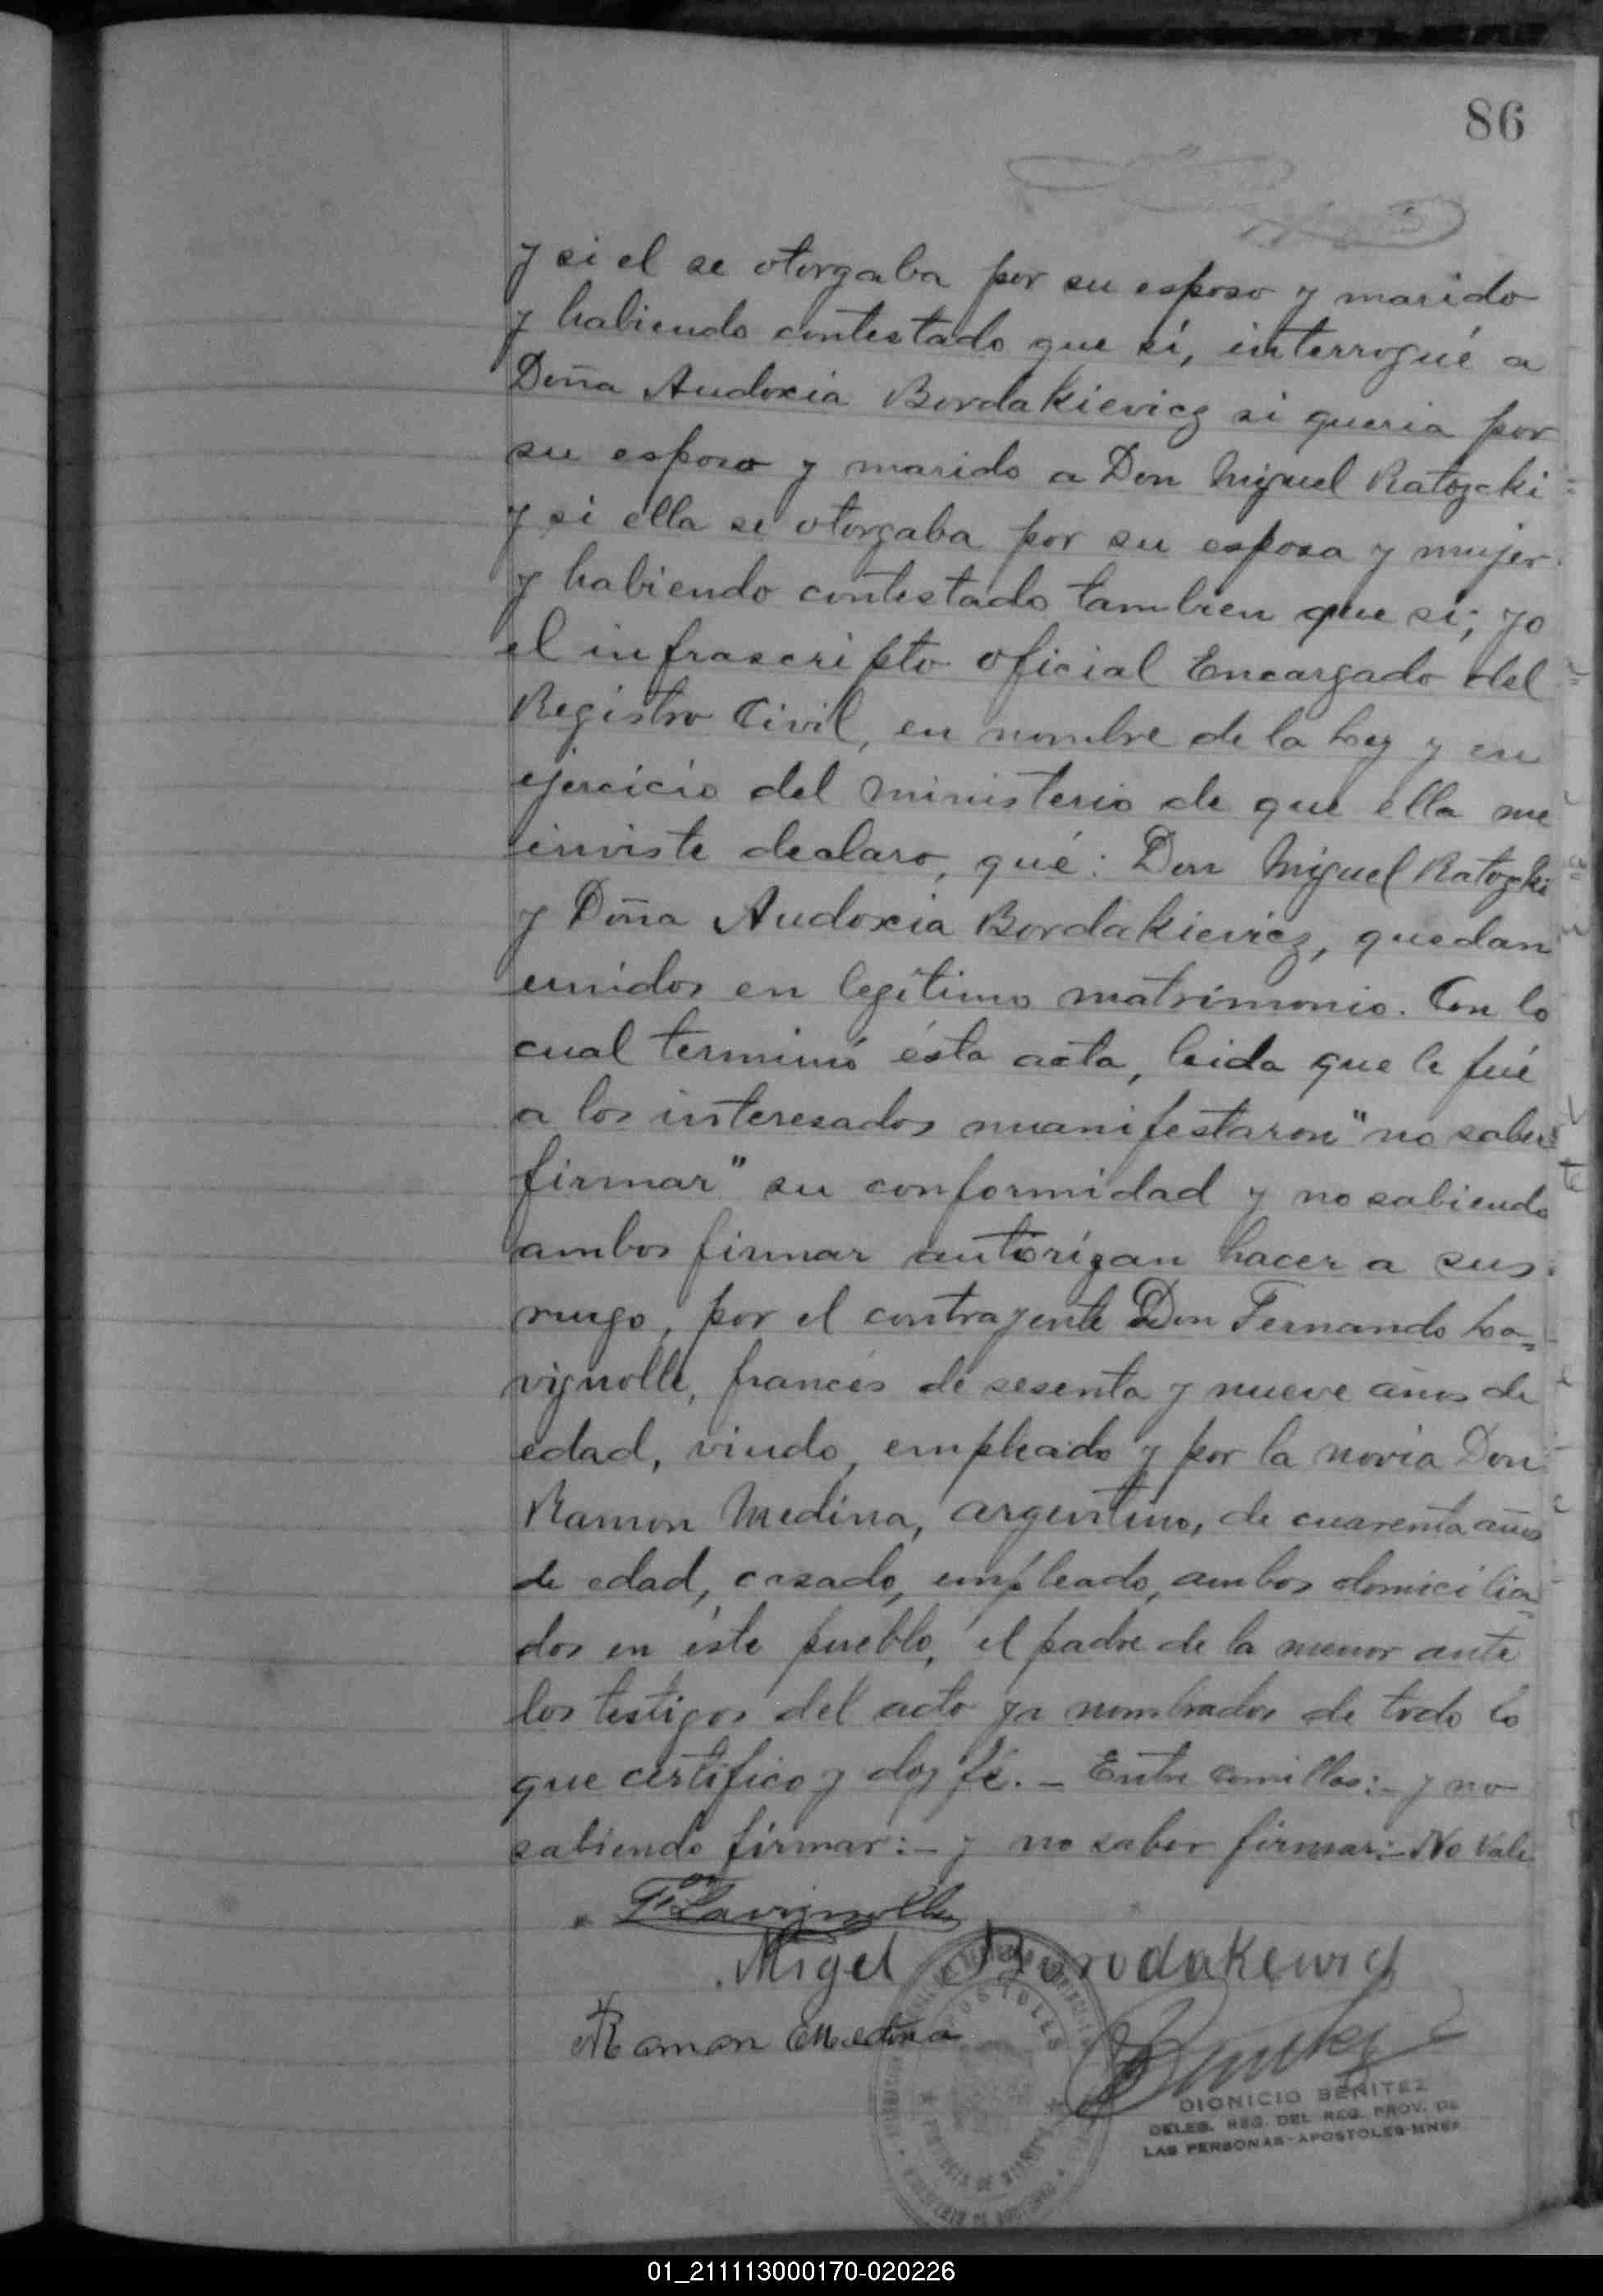 86
y si el se otorgaba por su esposo y marido
y habiendo contestado que sí, interrogué a
Doña Audoxia Bordakievicz si queria por
su esposo y marido a Don Miguel Ratozcki
y si ella se otorgaba por su esposa y mujer
y habiendo contestado tambien que si; yo
el infrascripto oficial Encargado del
Registro Civil, en nombre de la Ley y en
ejercicio del ministerio de que ella me
inviste declaro, qué: Don Miguel Ratozcki
y Doña Audoxia Bordakievicz, quedan
unidos en legítimo matrimonio. Con lo
cual terminó ésta acta, leida que le fué
a los interesados manifestaron "no saber
firmar" su conformidad y no sabiendo
ambos firmar autorizan hacer a sus
ruego, por el contrayente Don Fernando La=
vignolle, francés de sesenta y nueve años de
edad, viudo, empleado y por la novia Don
Ramon Medina, argentino, de cuarenta años
de edad, casado, empleado, ambos domicilia=
dos en éste pueblo, el padre de la menor ante
los testigos del acto ya nombrados de todo lo
que certifico y doy fé. - Entre comillas:- y no
sabiendo firmar:- y no saber firmar:- No Vale
F. Lavignolle
Migel Borodakewicz
Ramon Medina
APOSTOLES
DIONICIO BENITEZ
DELEG. REG. DEL REG. PROV. DE
LAS PERSONAS-APOSTOLES-MNES
01_211113000170-020226